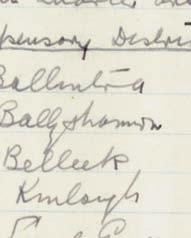 pensary Distri
Ballintra
Ballyshannon
Belleek
Kinlough